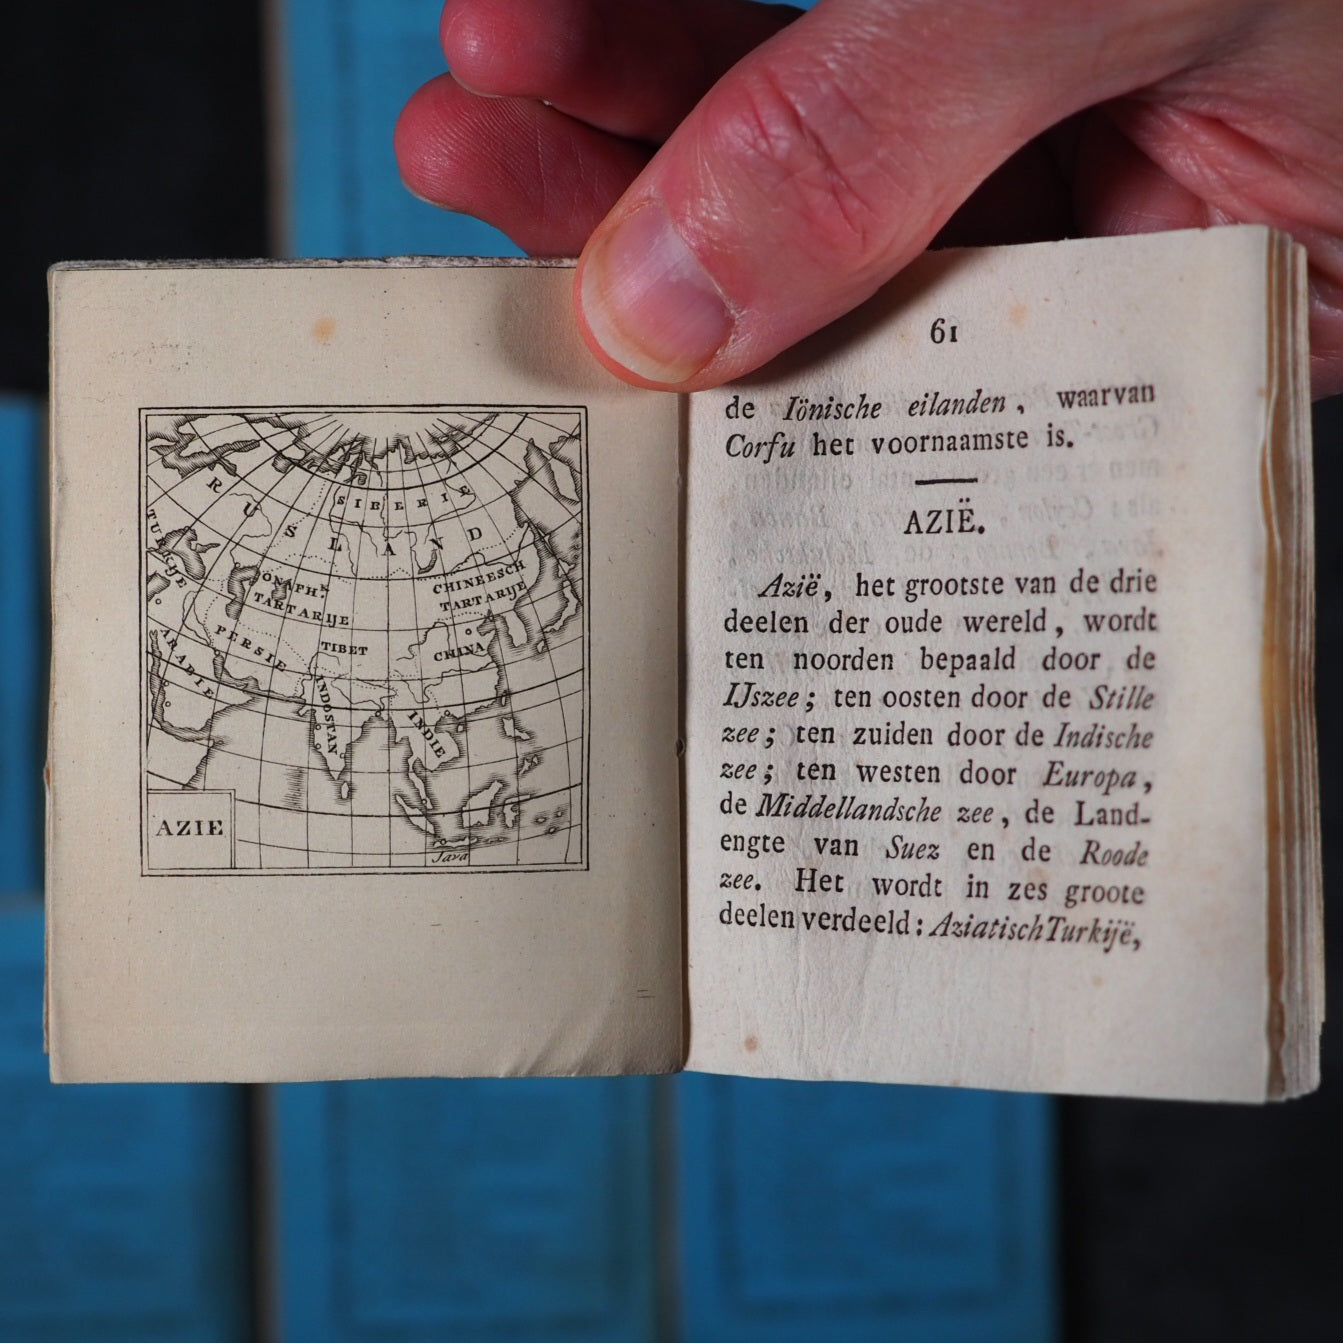 RUSLAND
SIBERIE
TURKIJE
ONAPH.
TARTARIJE
CHINEESCH
TARTARIJE
PERSIE
TIBET
CHINA
ARABIE
INDOSTAN
INDIE
AZIE
Java
61
de Iönische eilanden, waarvan
Corfu het voornaamste is.
AZIË.
Azië, het grootste van de drie
deelen der oude wereld, wordt
ten noorden bepaald door de
IJszee; ten oosten door de Stille
zee; ten zuiden door de Indische
zee; ten westen door Europa,
de Middellandsche zee, de Land-
engte van Suez en de Roode
zee. Het wordt in zes groote
deelen verdeeld: Aziatisch Turkijë,